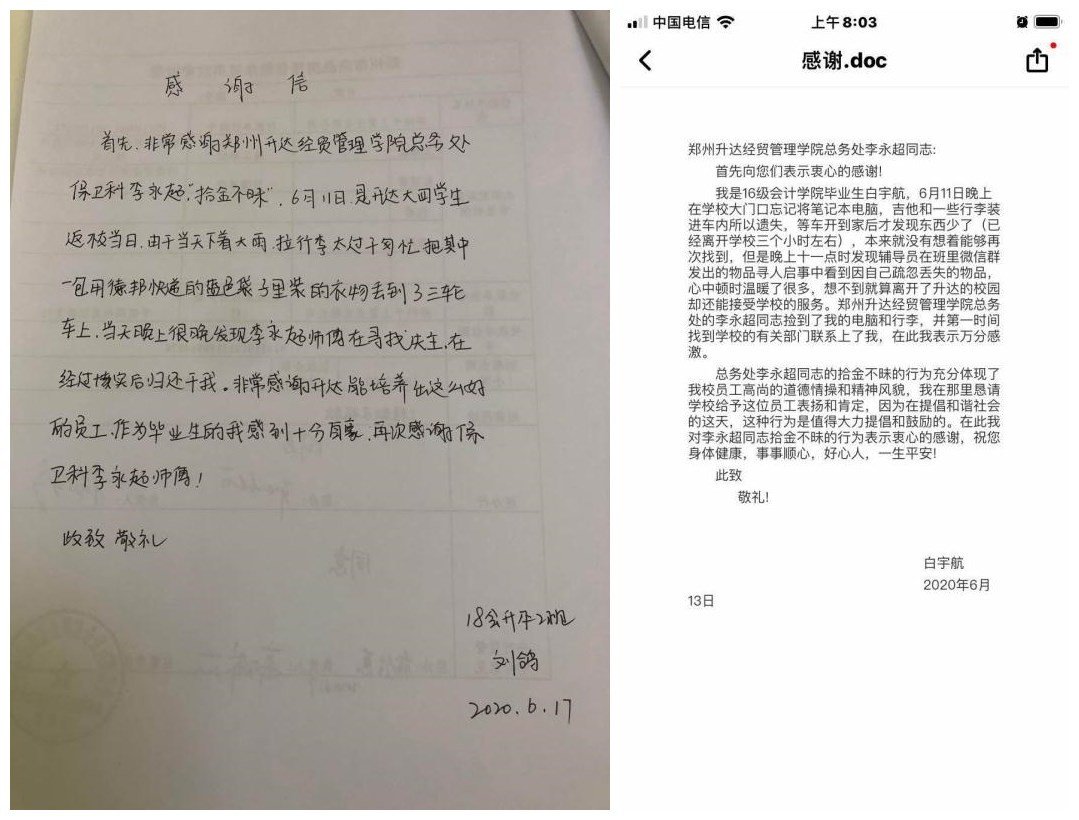 感 谢 信
首先,非常感谢郑州升达经贸管理学院总务处
保卫科李永超"拾金不昧",6月11日,是升达大四学生
返校当日,由于当天下着大雨,拉行李太过于匆忙,把其中
一包用德邦快递的蓝色袋子里装的衣物丢到了三轮
车上,当天晚上很晚发现李永超师傅在寻找失主,在
经过核实后归还于我。非常感谢升达能培养出这么好
的员工,作为毕业生的我感到十分自豪,再次感谢保
卫科李永超师傅!
此致 敬礼
18会升本2班
刘鸽
2020.6.17
中国电信
上午8:03
感谢.doc
郑州升达经贸管理学院总务处李永超同志:
首先向您们表示衷心的感谢!
我是16级会计学院毕业生白宇航,6月11日晚上
在学校大门口忘记将笔记本电脑,吉他和一些行李装
进车内所以遗失,等车开到家后才发现东西少了(已
经离开学校三个小时左右),本来就没有想着能够再
次找到,但是晚上十一点时发现辅导员在班里微信群
发出的物品寻人启事中看到因自己疏忽丢失的物品,
心中顿时温暖了很多,想不到就算离开了升达的校园
却还能接受学校的服务。郑州升达经贸管理学院总务
处的李永超同志捡到了我的电脑和行李,并第一时间
找到学校的有关部门联系上了我,在此我表示万分感
激。
总务处李永超同志的拾金不昧的行为充分体现了
我校员工高尚的道德情操和精神风貌,我在那里恳请
学校给予这位员工表扬和肯定,因为在提倡和谐社会
的这天,这种行为是值得大力提倡和鼓励的。在此我
对李永超同志拾金不昧的行为表示衷心的感谢,祝您
身体健康,事事顺心,好心人,一生平安!
此致
敬礼!
白宇航
2020年6月
13日